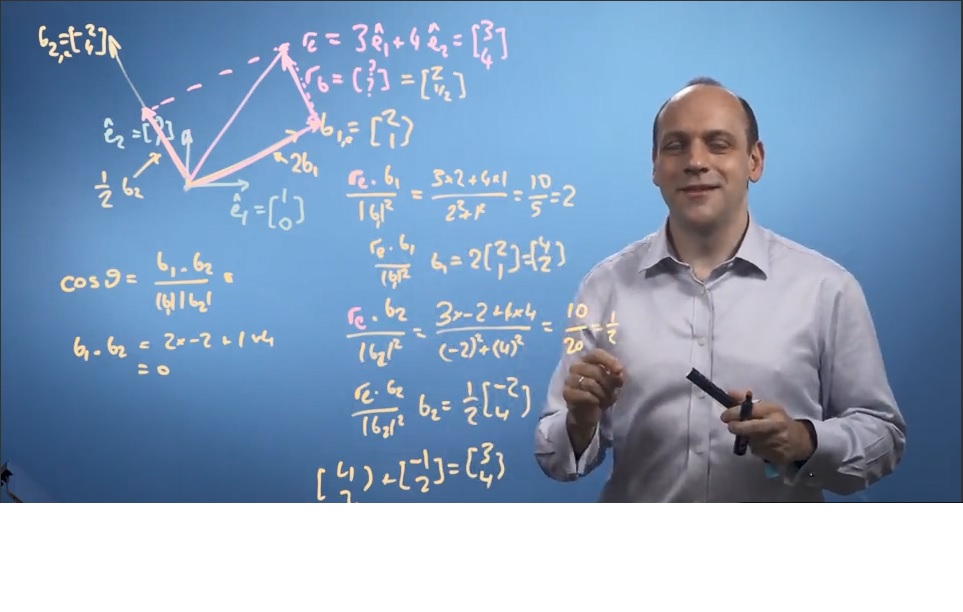 b₂,ₑ = [-2 4]
rₑ = 3ê₁ + 4ê₂ = [3 4]
r_b = [? ?] = [2 1/2]
ê₂ = [0 1]
b₁,ₑ = [2 1]
½ b₂
2b₁
ê₁ = [1 0]
rₑ · b₁ / |b₁|² = 3×2 + 4×1 / 2² + 1² = 10/5 = 2
rₑ · b₁ / |b₁|² b₁ = 2[2 1] = [4 2]
cos θ = b₁ · b₂ / |b₁| |b₂| =
b₁ · b₂ = 2×-2 + 1×4
= 0
rₑ · b₂ / |b₂|² = 3×-2 + 4×4 / (-2)² + (4)² = 10/20 = 1/2
rₑ · b₂ / |b₂|² b₂ = ½ [-2 4]
[4 2] + [-1 2] = [3 4]